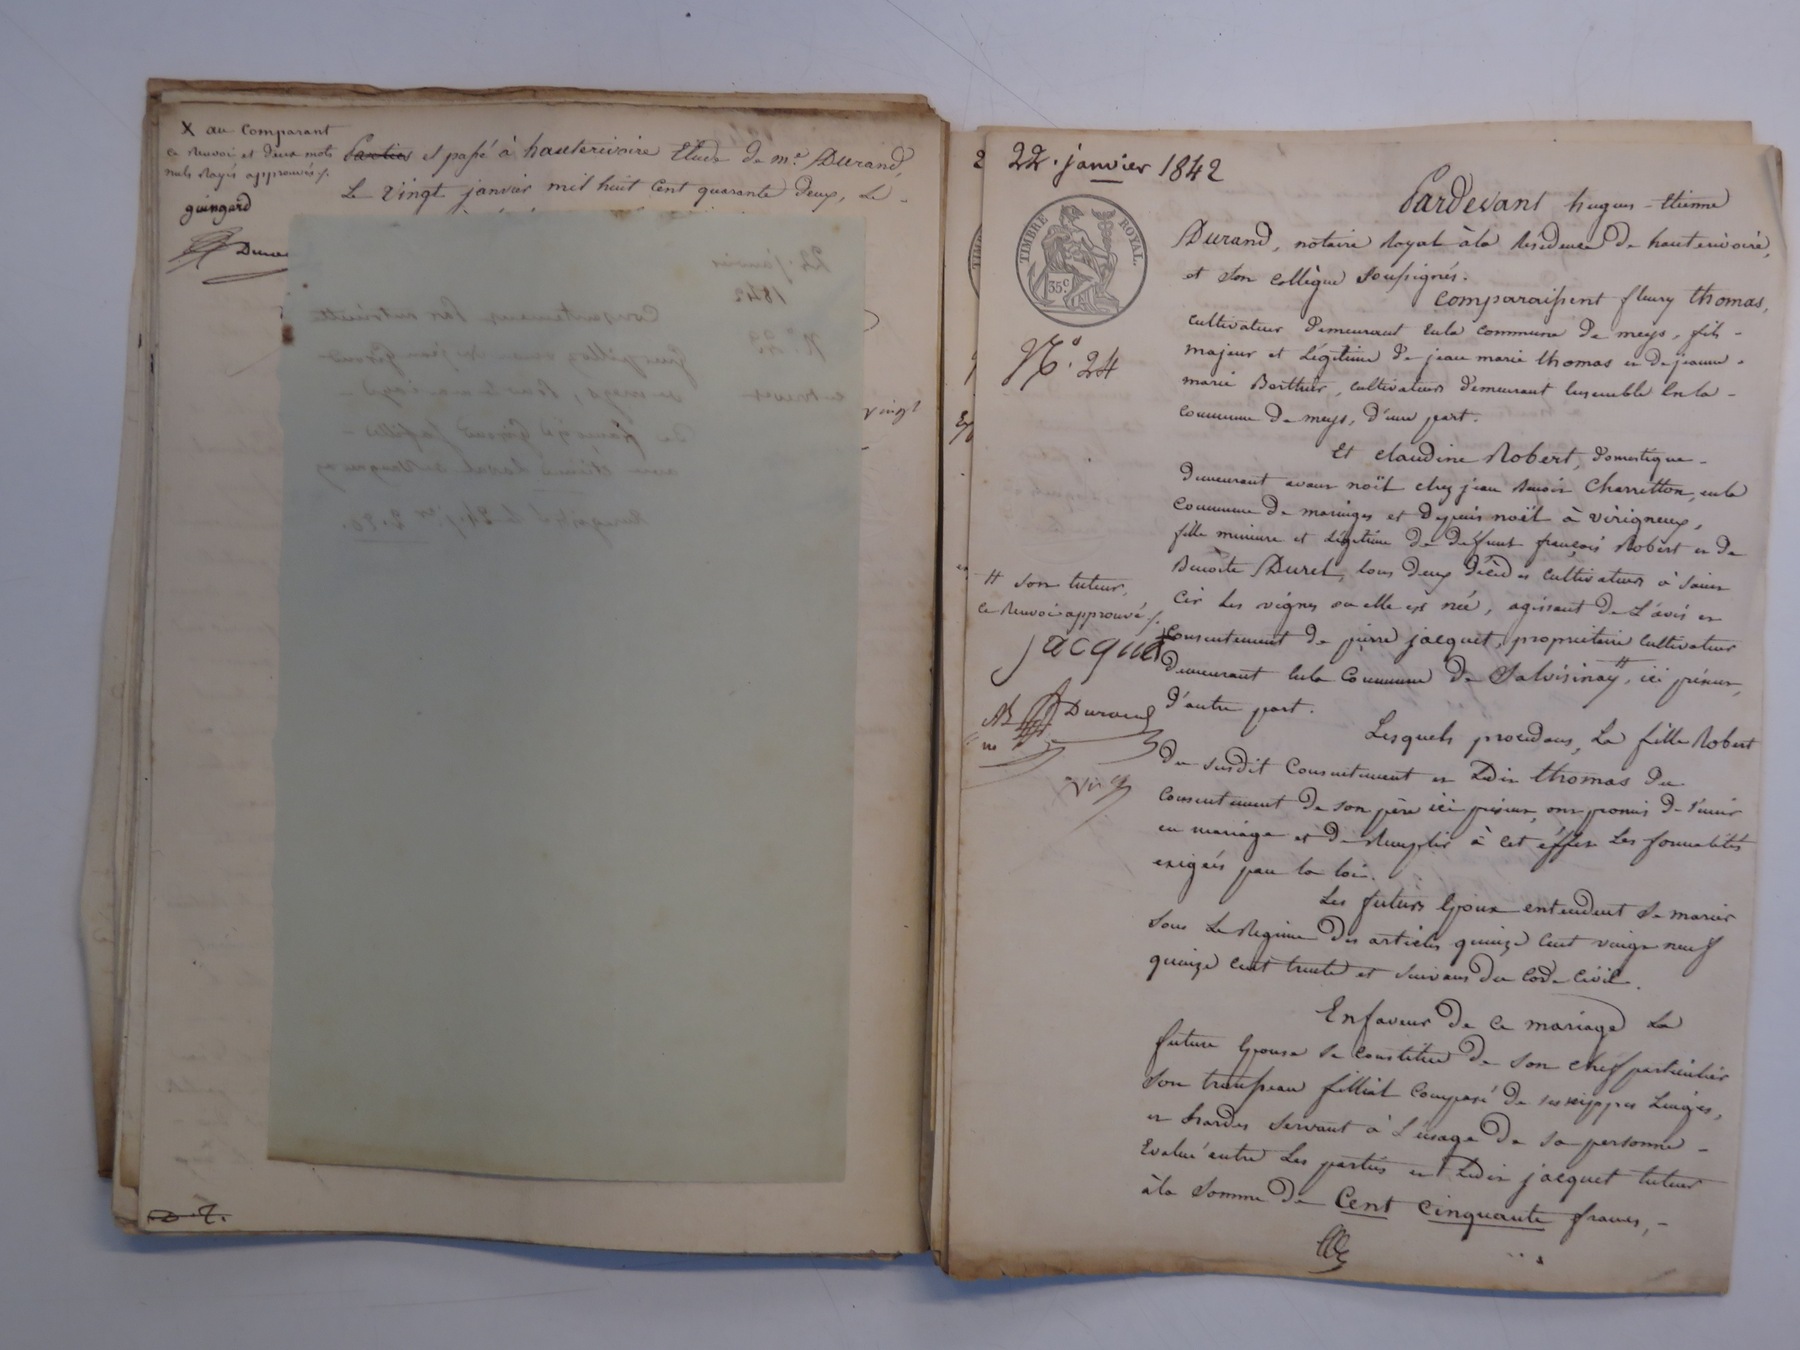 X au Comparant
ce renvoi et deux mots
nuls rayés approuvés ./.
guingard
Durand
Parties et passé à hauterivoire Etude de me. Durand,
Le vingt janvier mil huit cent quarante deux, Le
22. janvier
1842
N°. 23
Consentement par antoinette
veuve de jean Giroud
de meys, pour le mariage
de françoise Giroud sa fille
avec etienne Laval
Enregistré le 24 jer 2.20.
vingt
22. janvier 1842
TIMBRE ROYAL.
35c.
N°. 24
Pardevant hugues-etienne
Durand, notaire royal à la résidence de hauterivoire,
et son collègue soussignés.
Comparaissent fleury thomas,
cultivateur demeurant en la commune de meys, fils
majeur et Légitime de jean marie thomas et de jeanne
marie Berthier, cultivateurs demeurant ensemble en la
commune de meys, d'une part.
Et claudine Robert, domestique
demeurant avant noël chez jean Benoit Charretton, en la
commune de maringes et depuis noël à virigneux,
fille mineure et Légitime de défunt françois Robert et de
Benoite Duret, tous deux décédés cultivateurs à saint
Cir Les vignes ou elle est née, agissant de L'avis et
Consentement de pierre jacquet, propriétaire cultivateur
demeurant en la Commune de Salvisinay, # ici présent,
d'autre part.
# son tuteur,
ce renvoi approuvé ./.
jacquet
Durand
Lesquels procédans, La fille Robert
du susdit Consentement et Ledit thomas du
Consentement de son père ici présent, ont promis de s'unir
en mariage et de remplir à cet éffet Les formalités
exigées par la loi.
Les futurs Epoux entendent se marier
sous Le Régime des articles quinze cent vingt neuf
quinze cent trente et suivans du Code Civil.
En faveur de ce mariage La
future Epouse se constitue de son chef particulier
son trousseau filliat composé de ses nippes Linges,
et hardes servant à L'usage de sa personne
Evalué entre Les parties et Ledit jacquet tuteur
à la somme de Cent Cinquante francs,